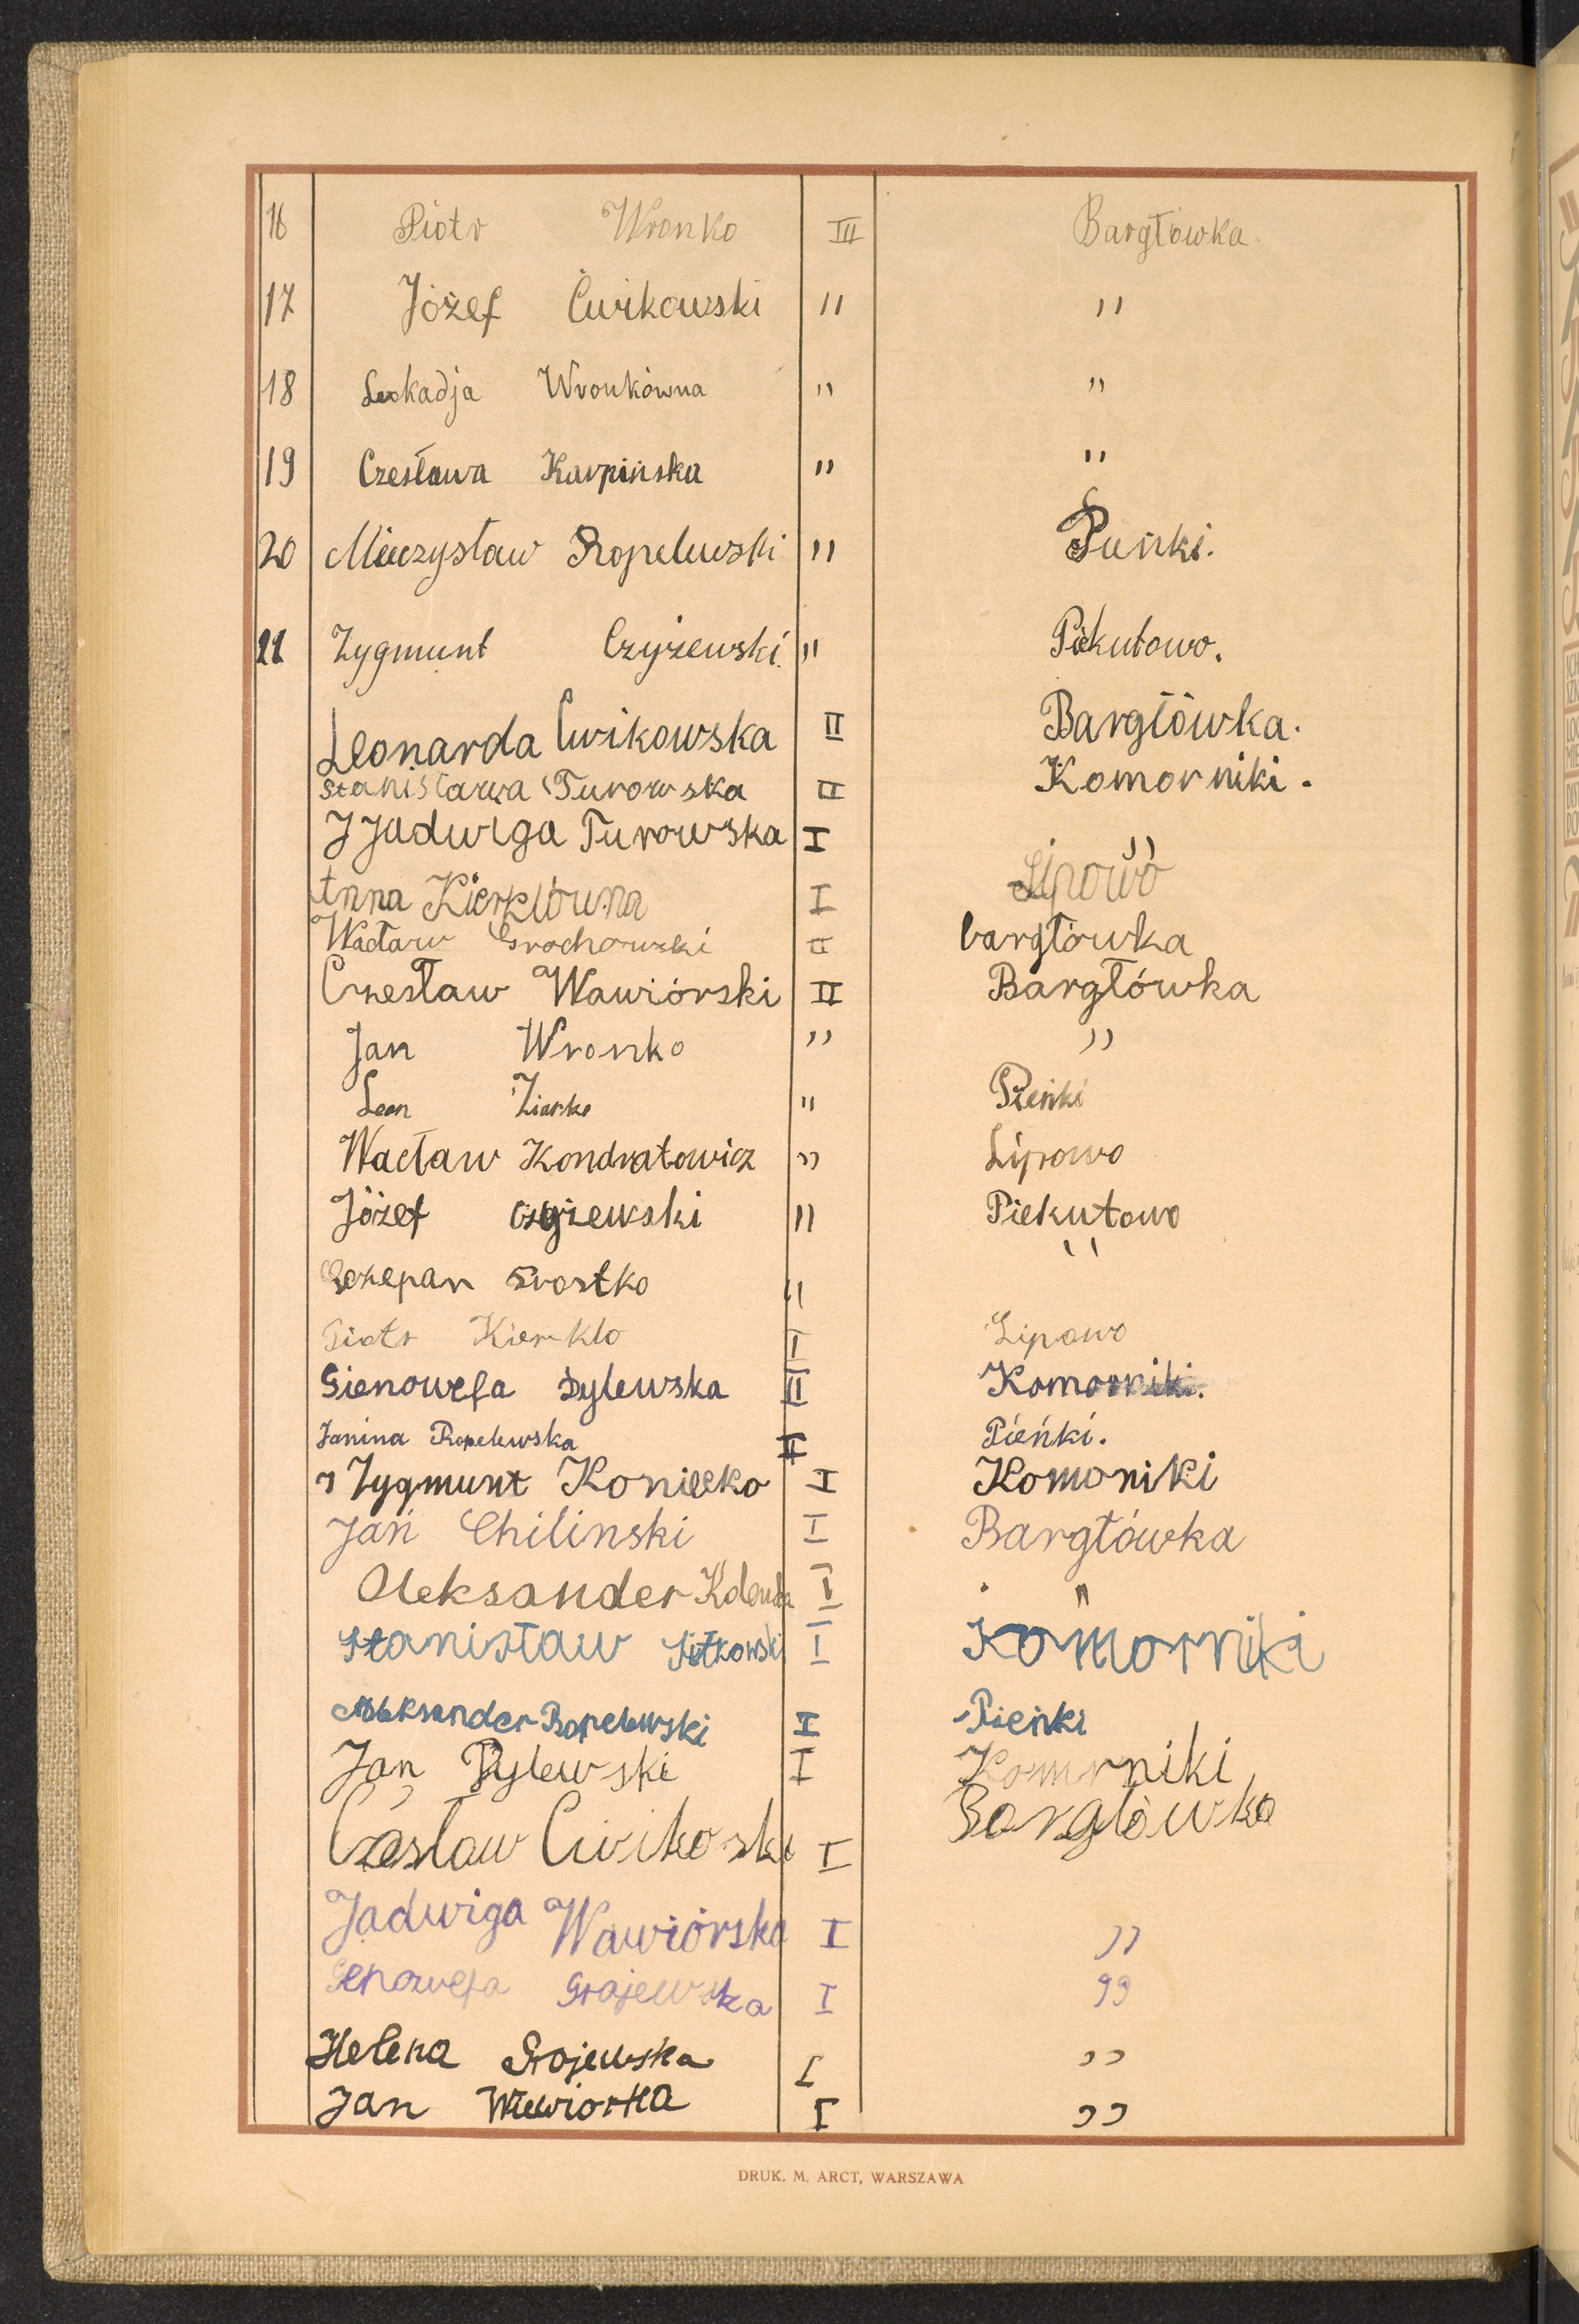 16 Piotr Wronko III Bargłówka.
17 Józef Ćwikowski " "
18 Leokadja Wronkówna " "
19 Czesława Karpińska " "
20 Mieczysław Ropelewski " Pieńki.
21 Zygmunt Czyżewski " Piekutowo.
Leonarda Ćwikowska II Bargłówka.
Stanisława Turowska II Komorniki.
J Jadwiga Turowska I "
Anna Kierklówna I Lipowo
Wacław Grochowski II bargłówka
Czesław Wawiórski II Bargłówka
Jan Wronko " "
Leon Ziarko " Pieńki
Wacław Kondratowicz " Lipowo
Józef Czyżewski " Piekutowo
Szczepan Srostko " "
Piotr Kierklo I Lipowo
Gienowefa Dylewska II Komorniki.
Janina Ropelewska II Pieńki.
Zygmunt Koniecko I Komoniki
Jan Chilinski I Bargłówka
Aleksander I "
Stanisław I Komorniki
Aleksander Ropelewski II Pieńki
Jan Dylewski I Komorniki
Czesław Ćwikoski I Bargłówka
Jadwiga Wawiórska I "
Genowefa Grajewska I "
Helena Grajewska I "
Jan Wiewiorka I "
DRUK. M. ARCT, WARSZAWA